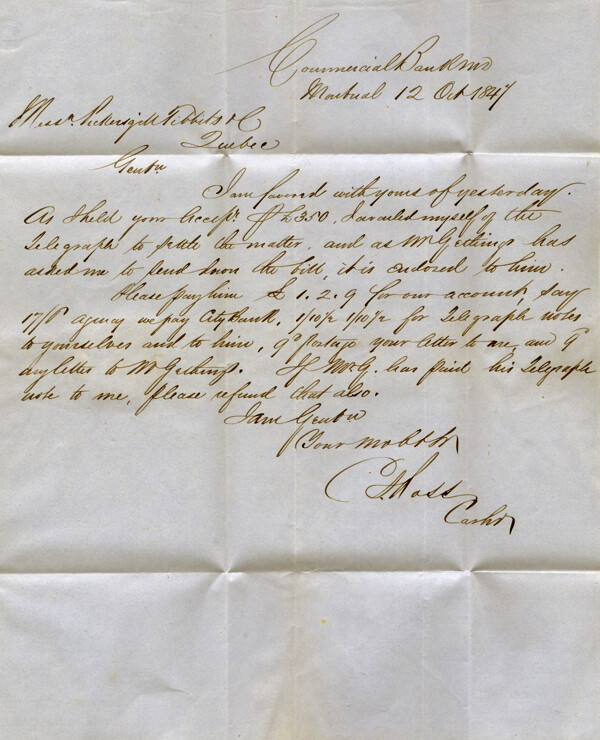 Commercial Bank MD
Montreal 12 Oct 1847
Messrs Pickersgill Tibbits & C
Quebec
Gentn
I am favored with yours of yesterday.
As I held your Accepe £350. I availed myself of the
Telegraph to settle the matter, and as Mr Gethings has
asked me to send down the bill, it is endored to him.
Please pay him £1.2.9 for our account, say
17/6 agency we pay City Bank, 1/10½ 1/10½ for Telegraph notes
to yourselves and to him, 9d Postage your letter to me, and 9d
my letter to Mr Gethings. If Mr G. has paid his Telegraph
note to me, please refund that also.
I am Gentn
Your mo obt St
Ross
Cashr